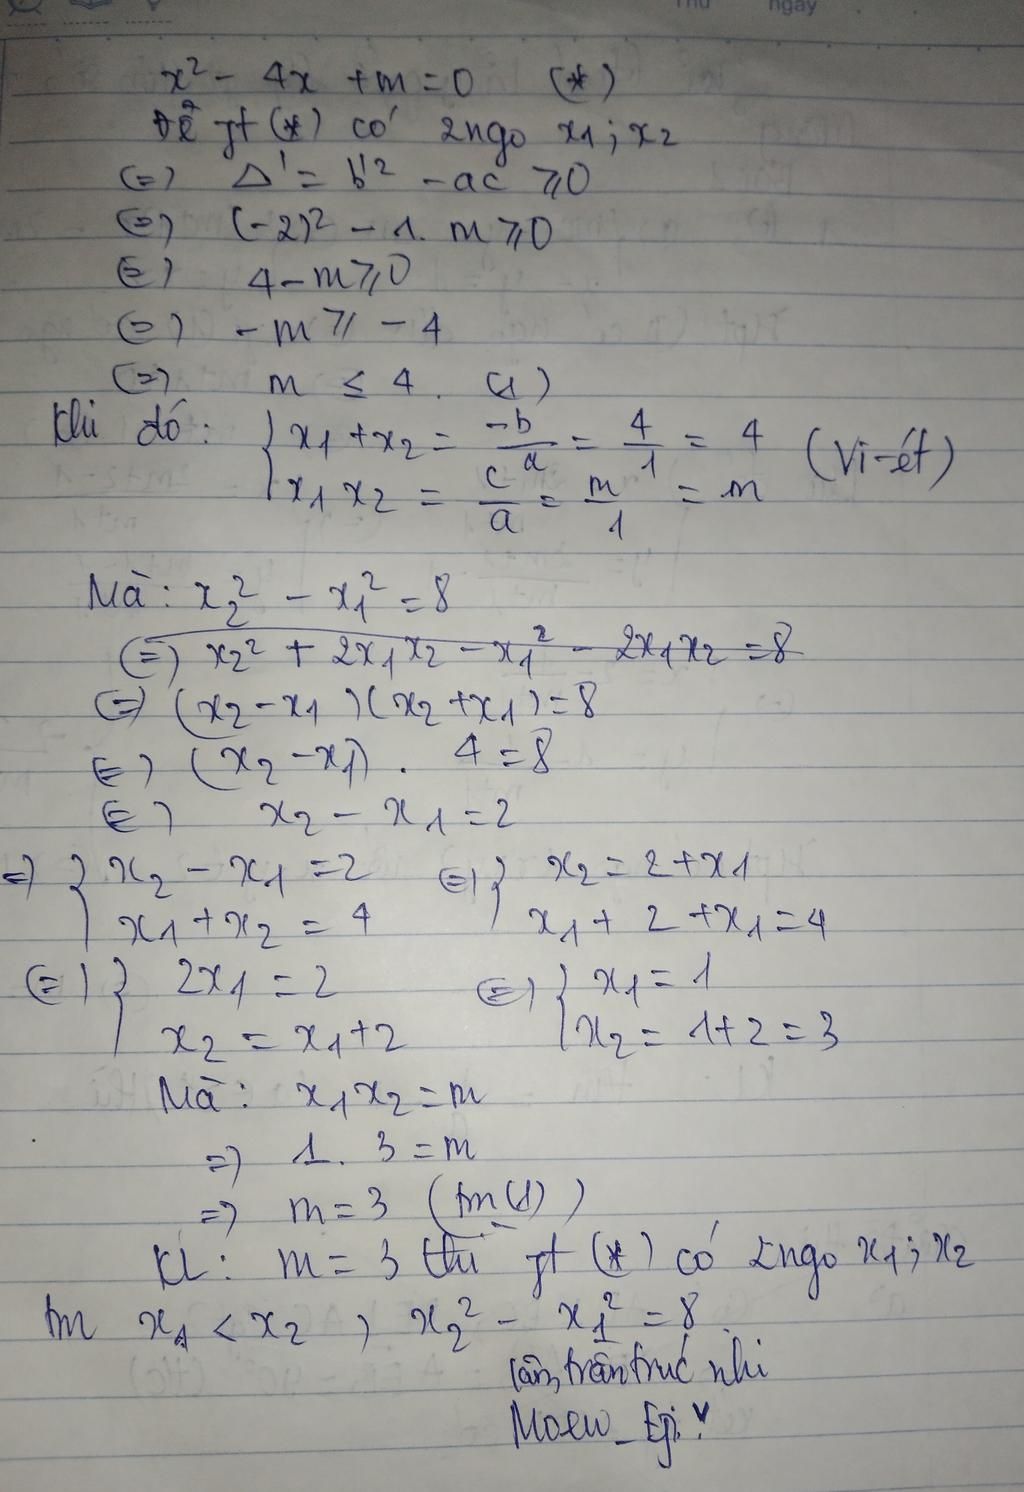 Thứ ngày
x² - 4x + m = 0 (*)
Để pt (*) có 2 ngo x1 ; x2
(=) Δ' = b'² - ac ≥ 0
(=) (-2)² - 1. m ≥ 0
(=) 4 - m ≥ 0
(=) - m ≥ - 4
(=) m ≤ 4. (1)
Khi đó: { x1 + x2 = -b/a = 4/1 = 4
x1 x2 = c/a = m/1 = m (Vi-ét)
Mà: x2² - x1² = 8
(=) x2² + 2x1x2 - x1² - 2x1x2 = 8
(=) (x2 - x1)(x2 + x1) = 8
(=) (x2 - x1) . 4 = 8
(=) x2 - x1 = 2
=) { x2 - x1 = 2 (=) { x2 = 2 + x1
x1 + x2 = 4 x1 + 2 + x1 = 4
(=) { 2x1 = 2 (=) { x1 = 1
x2 = x1 + 2 x2 = 1 + 2 = 3
Mà: x1x2 = m
=) 1. 3 = m
=) m = 3 (tm(1))
KL: m = 3 thì pt (*) có 2 ngo x1 ; x2
tm x1 < x2 , x2² - x1² = 8
trần trúc nhi
Moew_Epi